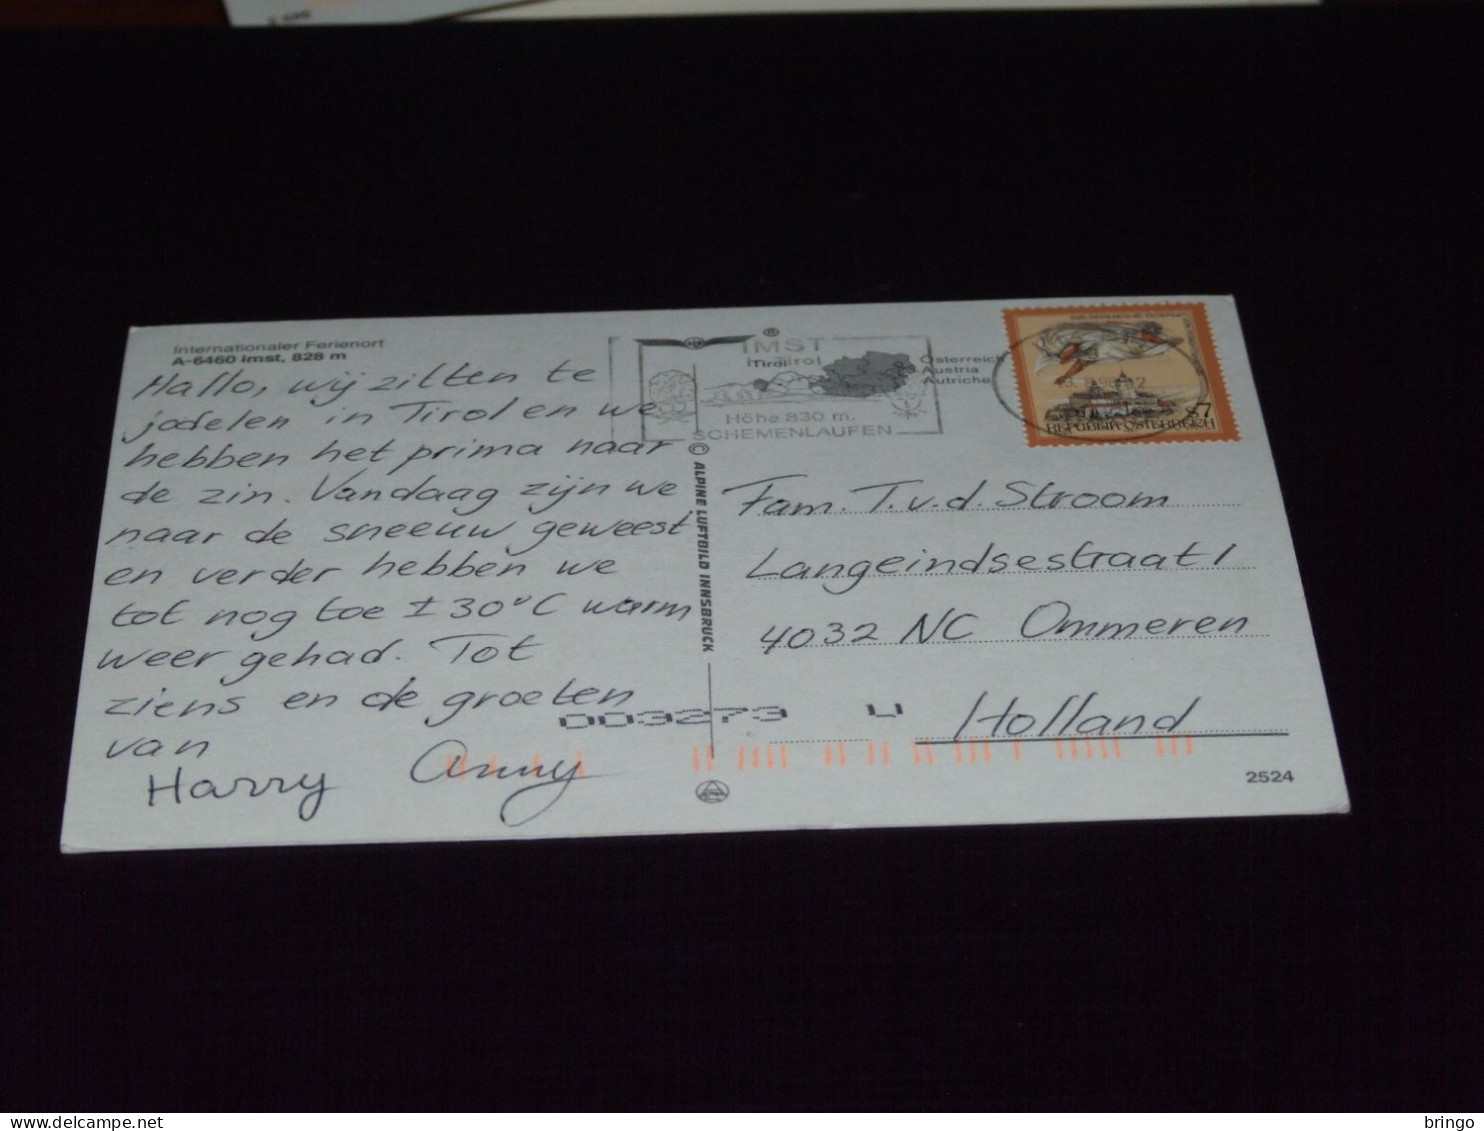 Internationaler Ferienort
A-6460 Imst, 828 m
Hallo, wij zilten te
jodelen in Tirol en we
hebben het prima naar
de zin. Vandaag zijn we
naar de sneeuw geweest
en verder hebben we
tot nog toe ± 30°C warm
weer gehad. Tot
ziens en de groeten
van
Harry Anny
© ALPINE LUFTBILD INNSBRUCK
®
IMST
Tirol
Höhe 830 m.
SCHEMENLAUFEN
Österreich
Austria
Autriche
S7
REPUBLIK ÖSTERREICH
Fam. T. v. d. Stroom
Langeindsestraat 1
4032 NC Ommeren
Holland
003273 U
2524
bringo